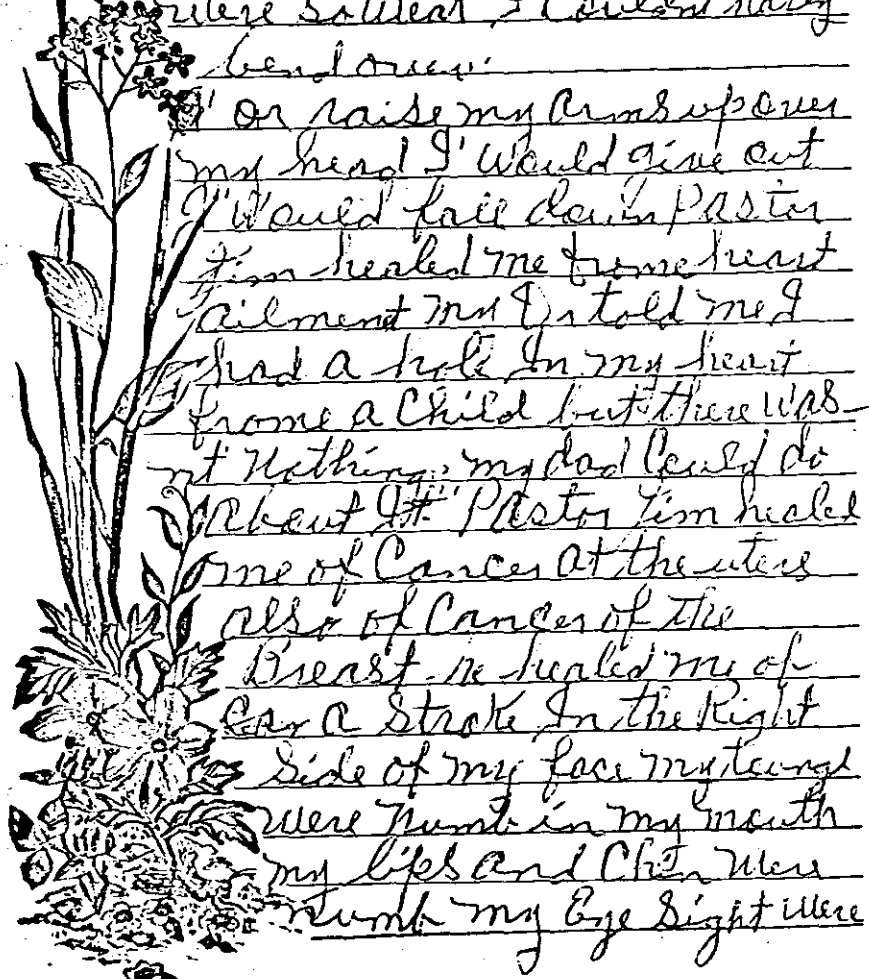 were so Weak I Couldn
bend over
or raise my arms up over
my head I' Would give out
I' Would fall down Pastor
Tim healed me frome heart
ailment my Dr told me I
had a hole In my heart
frome a Child but there Was
nt Nothing my dad Could do
about It" Pastor Tim healed
me of Cancer at the uters
also of Cancer of the
Breast he healed me of
a Stroke In the Right
Side of my face my tounge
were numb in my mouth
my lips and Chin Were
numb my Eye Sight were